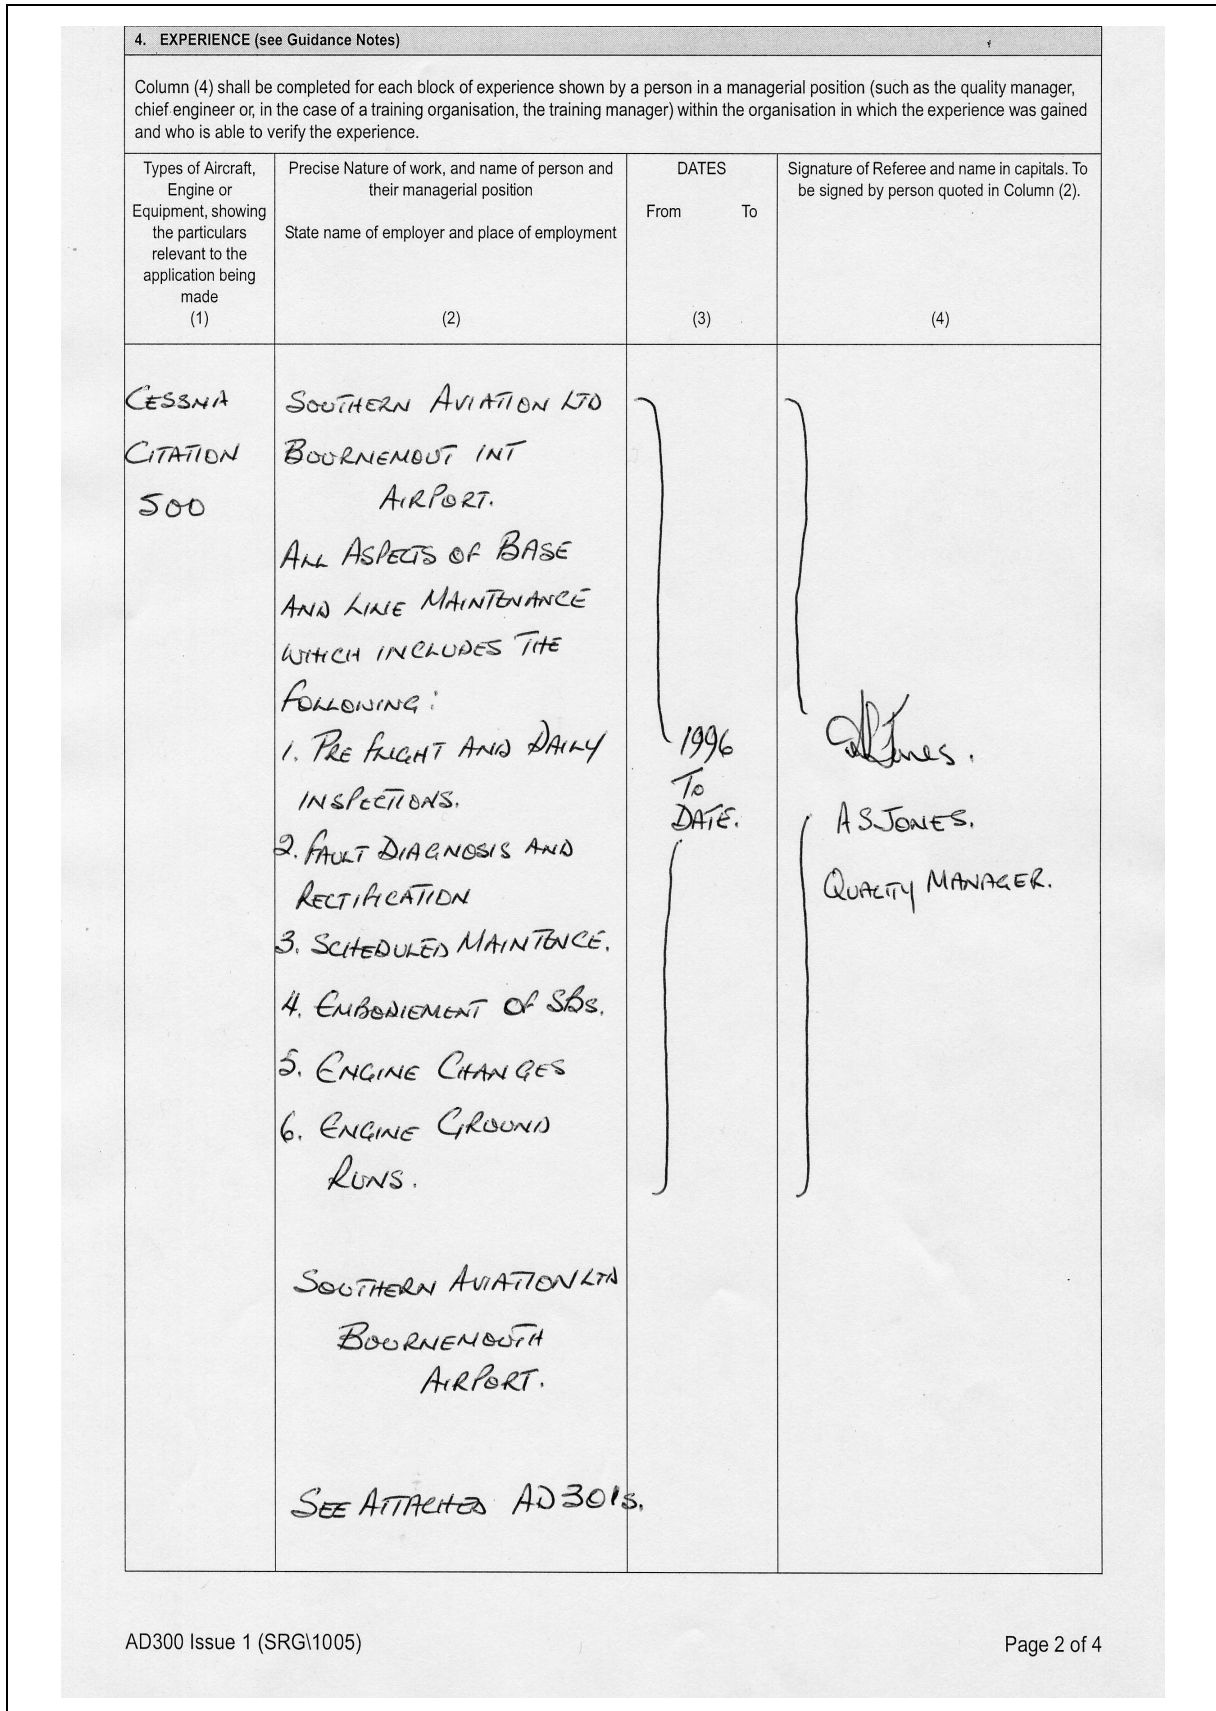 4. EXPERIENCE (see Guidance Notes)
Column (4) shall be completed for each block of experience shown by a person in a managerial position (such as the quality manager,
chief engineer or, in the case of a training organisation, the training manager) within the organisation in which the experience was gained
and who is able to verify the experience.
Types of Aircraft,
Engine or
Equipment, showing
the particulars
relevant to the
application being
made
(1)
Precise Nature of work, and name of person and
their managerial position
State name of employer and place of employment
(2)
DATES
From To
(3)
Signature of Referee and name in capitals. To
be signed by person quoted in Column (2).
(4)
CESSNA
CITATION
500
SOUTHERN AVIATION LTD
BOURNEMOUT INT
AIRPORT.
ALL ASPECTS OF BASE
AND LINE MAINTENANCE
WHICH INCLUDES THE
FOLLOWING:
1. PRE FLIGHT AND DAILY
INSPECTIONS.
2. FAULT DIAGNOSIS AND
RECTIFICATION
3. SCHEDULED MAINTENCE.
4. EMBODIEMENT OF SBs.
5. ENGINE CHANGES
6. ENGINE GROUND
RUNS.
SOUTHERN AVIATION LTD
BOURNEMOUTH
AIRPORT.
SEE ATTACHED AD301s.
1996
TO
DATE.
ASJones.
A S JONES.
QUALITY MANAGER.
AD300 Issue 1 (SRG\1005)
Page 2 of 4